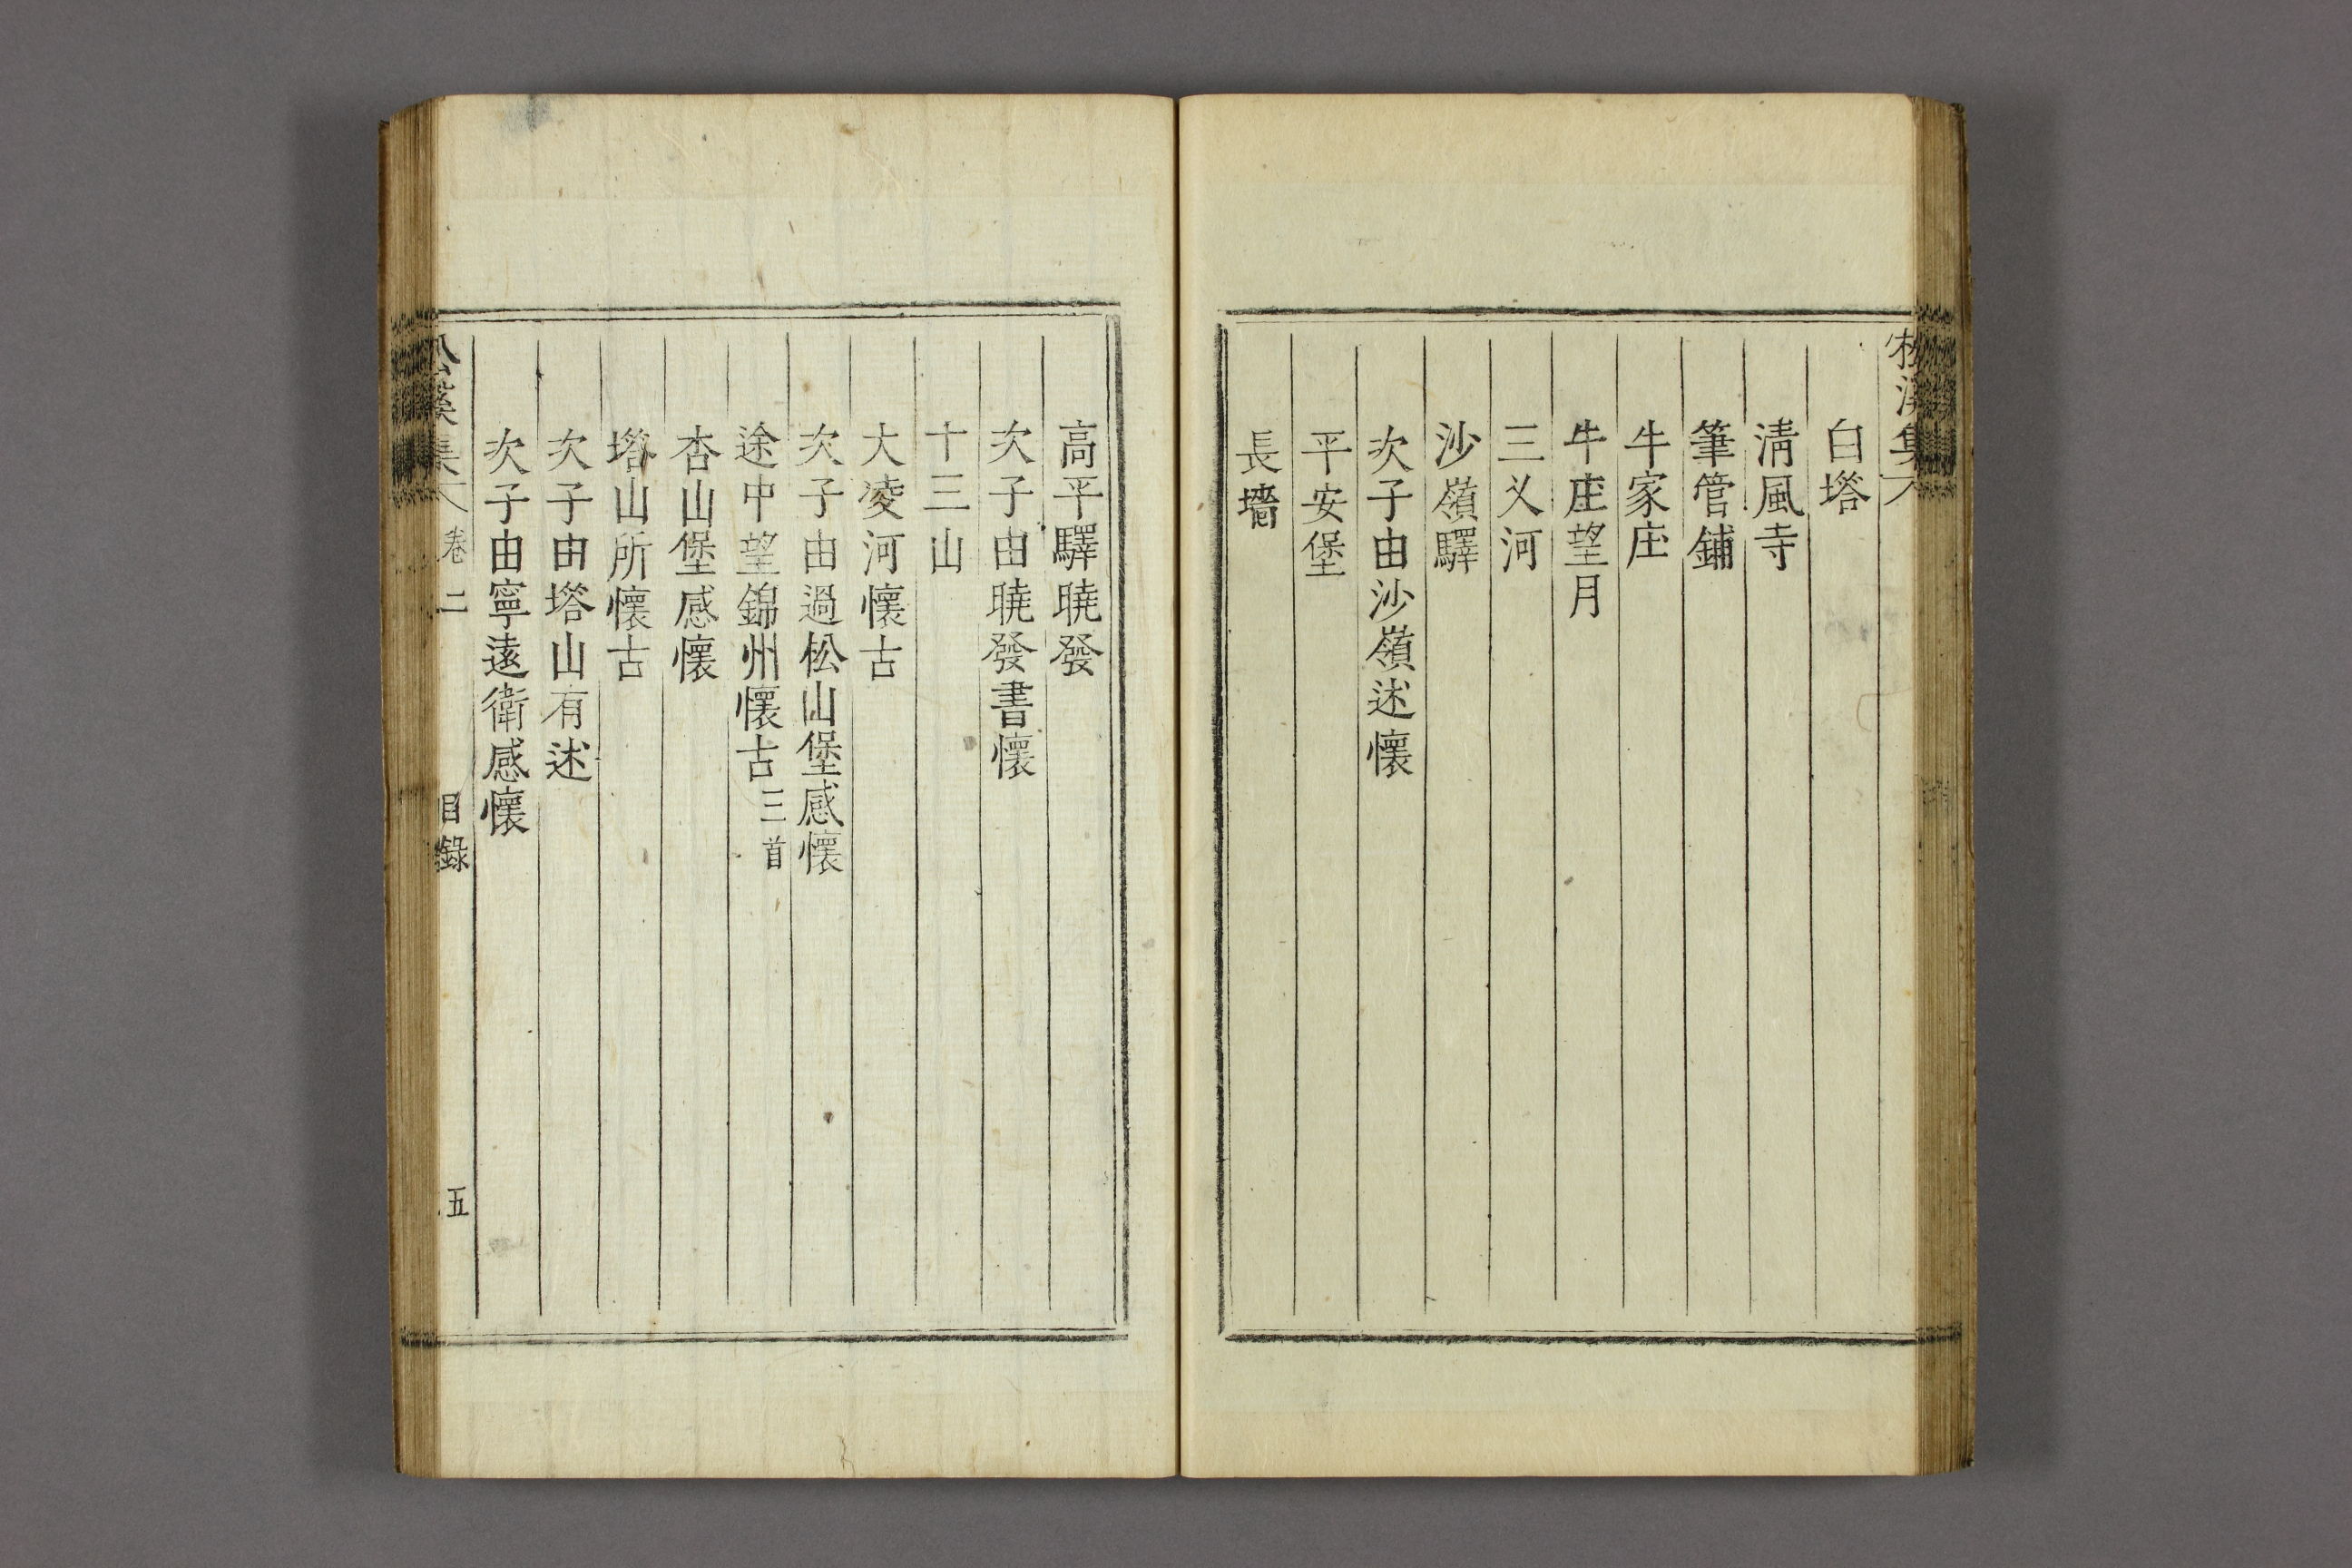 白塔
淸風寺
筆管鋪
牛家庄
牛庄望月
三义河
沙嶺驛
次子由沙嶺述懷
平安堡
長墻
高平驛曉發
次子由曉發書懷
十三山
大凌河懷古
次子由過松山堡感懷
途中望錦州懷古三首
杏山堡感懷
塔山所懷古
次子由塔山有述
次子由寧遠衛感懷
松溪集 卷二 目錄 五